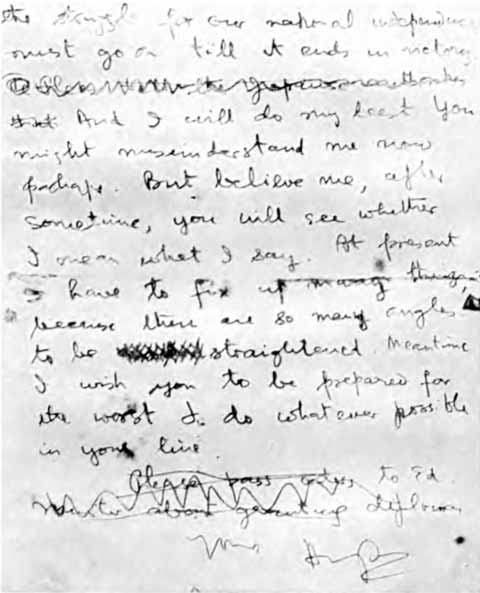 the struggle for our national independence
must go on till it ends in victory.
And I will do my best You
might misunderstand me now
perhaps. But believe me, after
sometime, you will see whether
I mean what I say. At present
I have to fix up many things,
because there are so many angles
to be straightened. Meantime
I wish you to be prepared for
the worst & do whatever possible
in your line.
Please pass orders to Ed.
about granting diploma